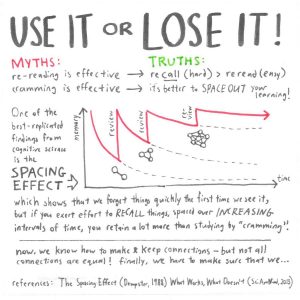 USE IT OR LOSE IT!
MYTHS: TRUTHS:
re-reading is effective → recall (hard) > reread (easy)
cramming is effective → it's better to SPACE OUT your learning!
One of the
best-replicated
findings from
cognitive science
is the
SPACING
EFFECT
memory
review
review
re-view
time
which shows that we forget things quickly the first time we see it,
but if you exert effort to RECALL things, spaced over INCREASING
intervals of time, you retain a lot more than studying by "cramming".
now, we know how to make & keep connections – but not all
connections are equal! finally, we have to make sure that we...
references: The Spacing Effect (Dempster, 1988) What Works, What Doesn't (Sci Am Mind, 2013)